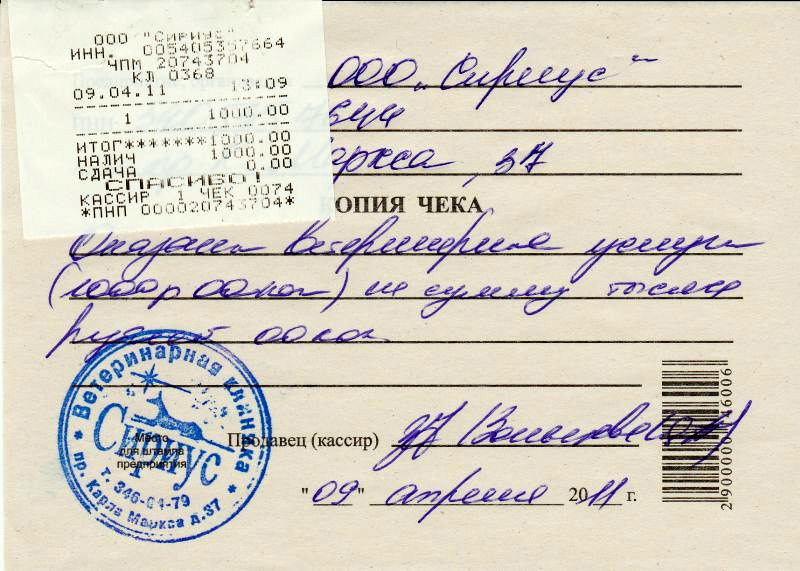 ООО "Сириус"
ИНН. 005405357664
ЧПМ 20743704
КЛ 0368
09.04.11 13:09
1 1000.00
ИТОГ*******1000.00
НАЛИЧ 1000.00
СДАЧА 0.00
СПАСИБО!
КАССИР 1 ЧЕК 0074
*ПНП 000020743704*
ООО „Сириус"
7644
Маркса, 37
КОПИЯ ЧЕКА
Оказаны ветеринарные услуги
(1000р 00коп) на сумму тысяча
рублей 00коп
Ветеринарная клиника
Сириус
Место
для штампа
предприятия
т. 346-04-79
пр. Карла Маркса д.37
Продавец (кассир)
"09" апреля 2011 г.
2900000146006